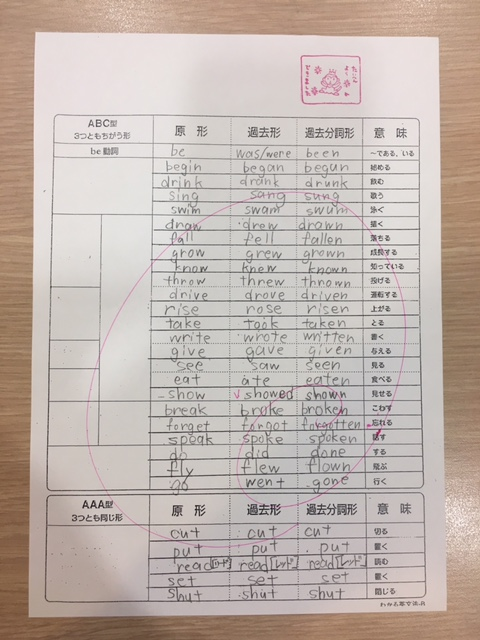 ABC型 3つともちがう形 原形 過去形 過去分詞形 意味
be動詞 be was/were been ～である、いる
begin began begun 始める
drink drank drunk 飲む
sing sang sung 歌う
swim swam swum 泳ぐ
draw drew drawn 描く
fall fell fallen 落ちる
grow grew grown 成長する
know knew known 知っている
throw threw thrown 投げる
drive drove driven 運転する
rise rose risen 上がる
take took taken とる
write wrote written 書く
give gave given 与える
see saw seen 見る
eat ate eaten 食べる
show showed shown 見せる
break broke broken こわす
forget forgot forgotten 忘れる
speak spoke spoken 話す
do did done する
fly flew flown 飛ぶ
go went gone 行く
AAA型 3つとも同じ形 原形 過去形 過去分詞形 意味
cut cut cut 切る
put put put 置く
read[リード] read[レッド] read[レッド] 読む
set set set 置く
shut shut shut 閉じる